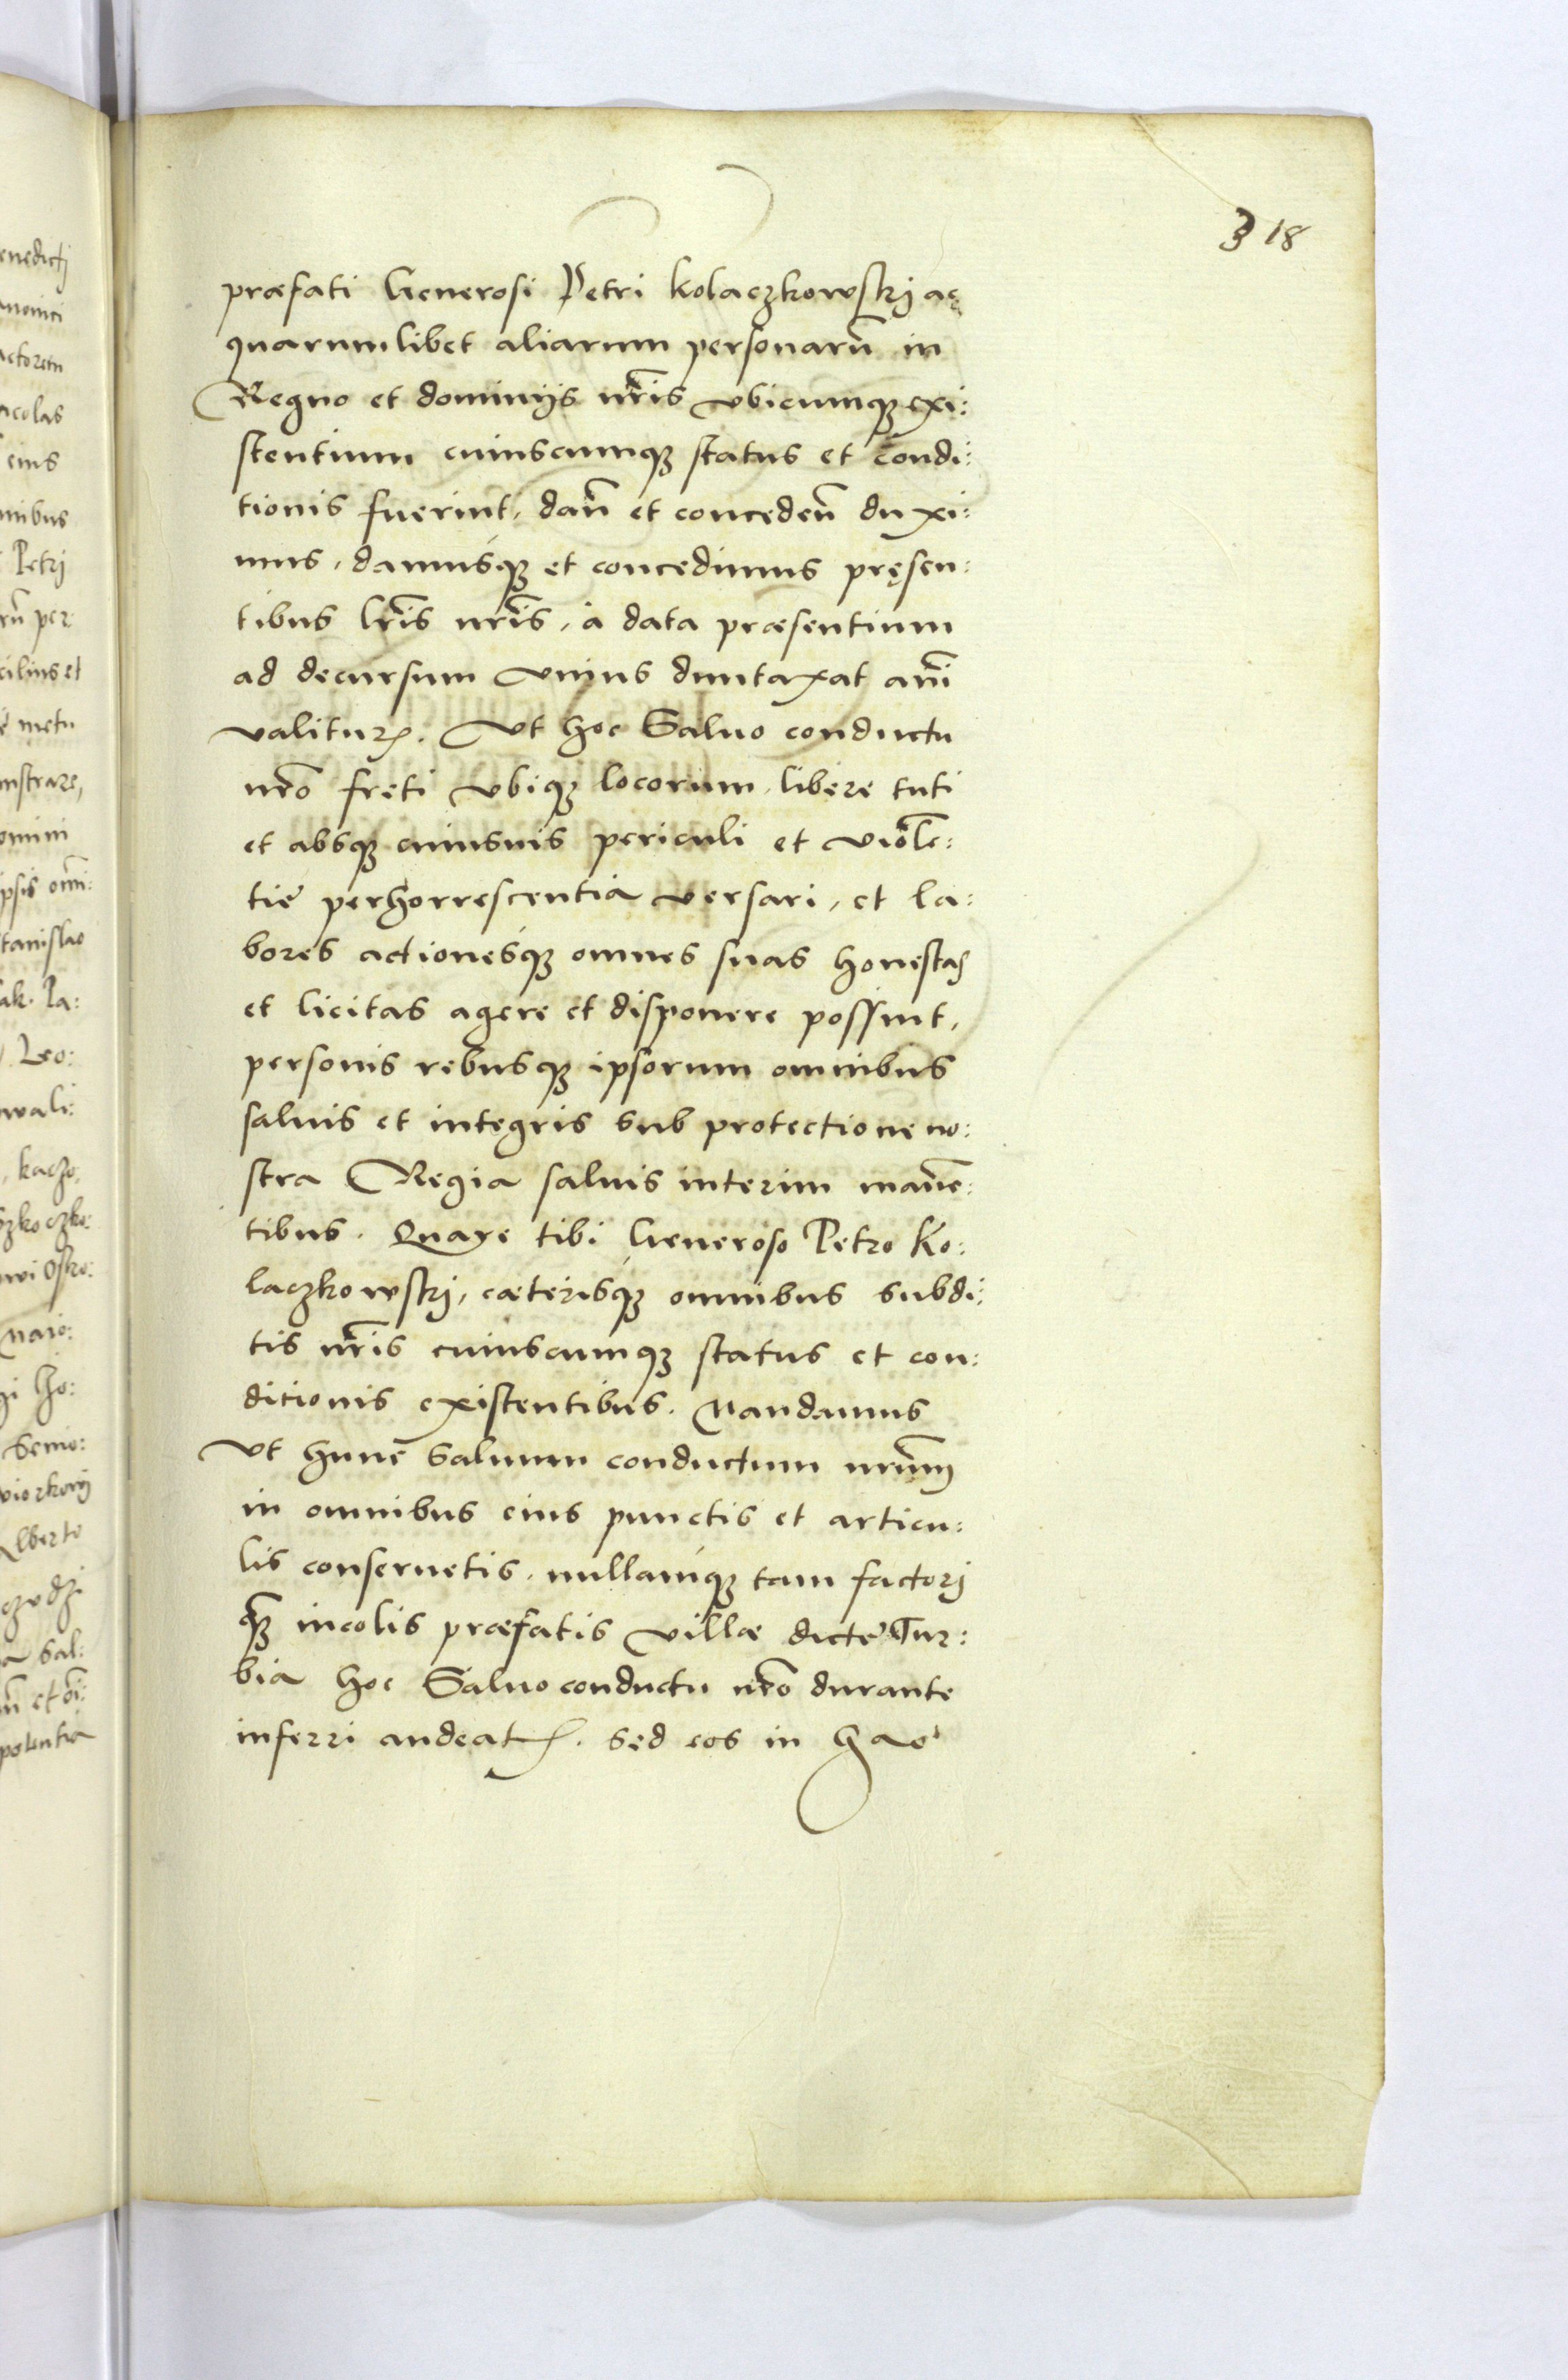 318
præfati Generosi Petri Kolaczkowskj ac
quarumlibet aliarum personarū in
Regno et dominijs nr̄is vbicumqꝫ exi:
stentium cuiuscumqꝫ status et condi:
tionis fuerint, dan̄ et conceden̄ duxi:
mus, damusqꝫ et concedimus pręsen:
tibus lr̄is nr̄is, à data præsentium
ad decursum vnius duntaxat anī
valitur. Vt hoc Saluo conductu
nr̄o freti vbiqꝫ locorum, libere tuti
et absqꝫ cuiusuis periculi et violē:
tie perhorrescentia versari, et la:
bores actionesqꝫ omnes suas honestas
et licitas agere et disponere possint,
personis rebusqꝫ ipsorum omnibus
saluis et integris sub protectione no:
stra Regia saluis interim manē:
tibus. Quare tibi Generoso Petro Ko:
laczkowskj, cæterisqꝫ omnibus subdi:
tis nr̄is cuiuscumqꝫ status et con:
ditionis existentibus. Mandamus
Vt hunc saluum conductum nr̄um
in omnibus eius punctis et articu:
lis conseruetis, nullamqꝫ tam factorj
qꝫ incolis præfatis villæ dictę Tur:
bia hoc Saluo conductu nr̄o durante
inferri audeat. Sed eos in hac
enedictj
nonici
actorem
ncolas
eius
nibus
Petrj
rū per
ciliuset
metu
nstrare,
omini
ipsis om̄i:
tanislao
ak. Pa:
Leo:
wali:
kaczo
zkoczko:
wi Osko:
naio:
i Ho:
Semo:
wiorkowj
lberto
czvdzi
a sal:
n̄ et oī:
potentia